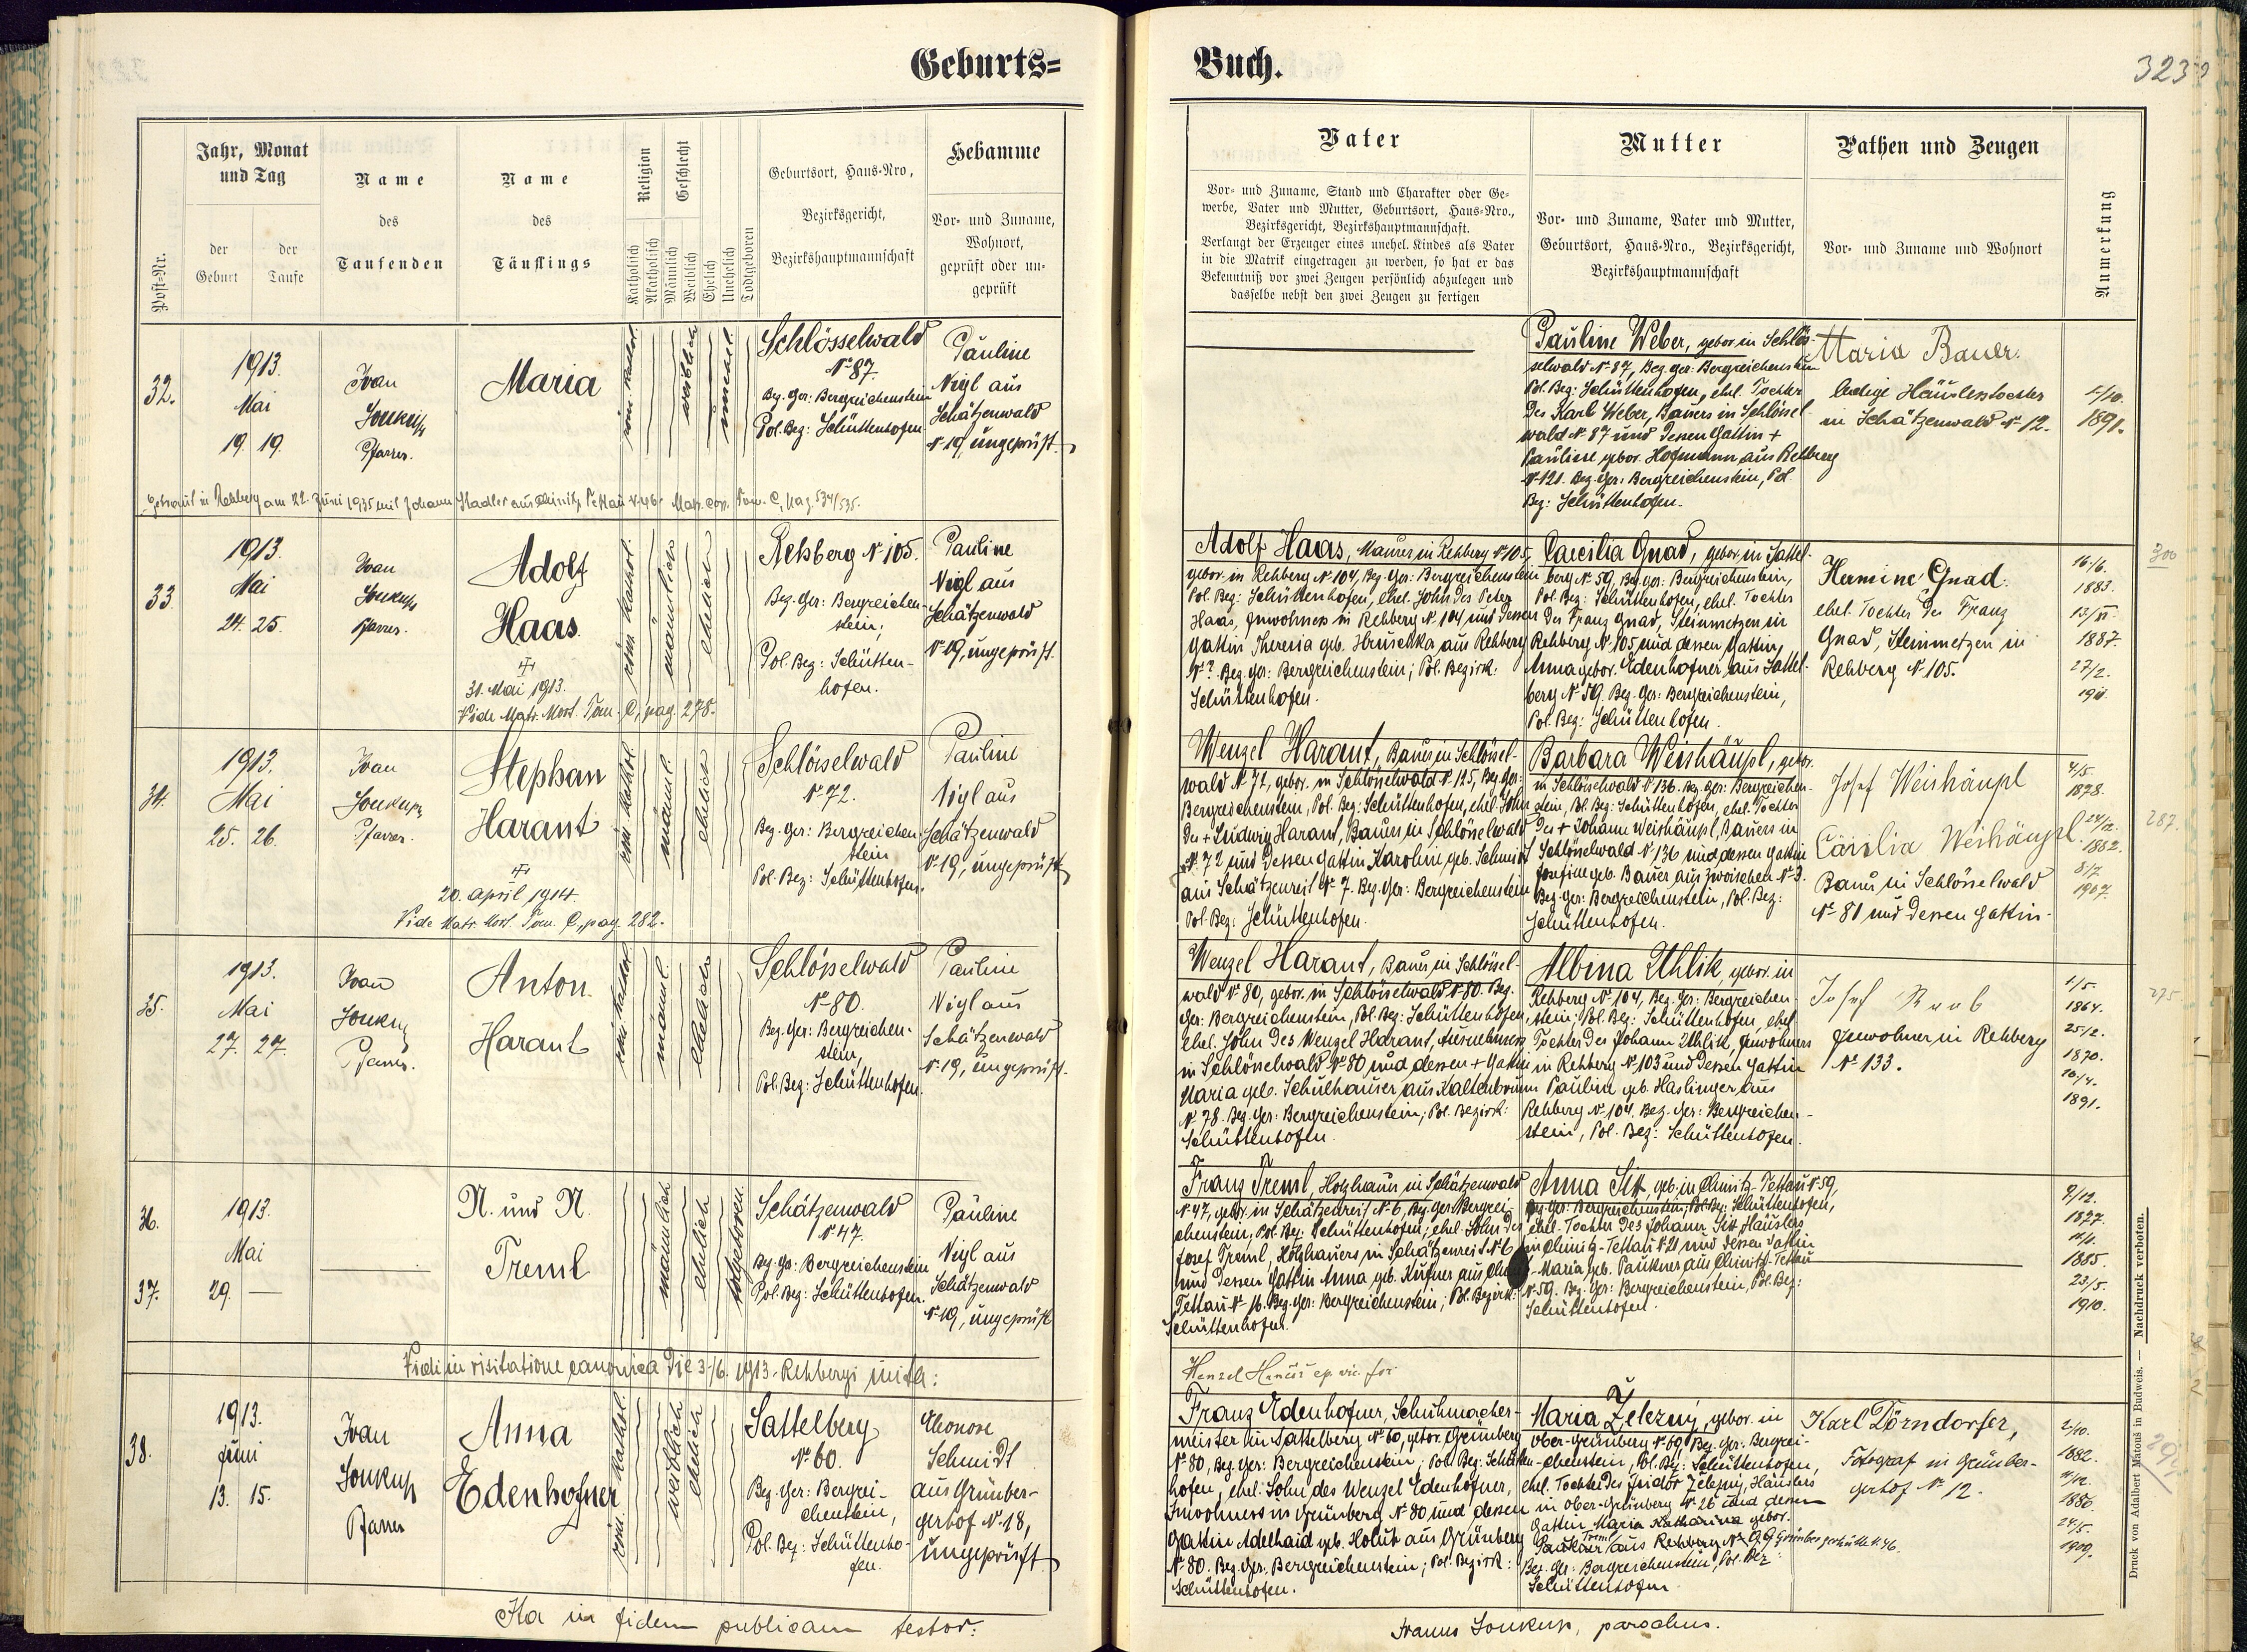 Geburts=
Buch.
323
Jahr, Monat
und Tag
der
Geburt
der
Taufe
Post-Nr.
Name
des
Taufenden
Name
des
Täuflings
Religion
Katholisch
Akatholisch
Geschlecht
Männlich
Weiblich
Ehelich
Unehelich
Todtgeboren
Geburtsort, Haus-Nro,
Bezirksgericht,
Bezirkshauptmannschaft
Hebamme
Vor- und Zuname,
Wohnort,
geprüft oder un-
geprüft
Vater
Vor- und Zuname, Stand und Charakter oder Ge-
werbe, Vater und Mutter, Geburtsort, Haus-Nro.,
Bezirksgericht, Bezirkshauptmannschaft.
Verlangt der Erzeuger eines unehel. Kindes als Vater
in die Matrik eingetragen zu werden, so hat er das
Bekenntniß vor zwei Zeugen persönlich abzulegen und
dasselbe nebst den zwei Zeugen zu fertigen
Mutter
Vor- und Zuname, Vater und Mutter,
Geburtsort, Haus-Nro., Bezirksgericht,
Bezirkshauptmannschaft
Pathen und Zeugen
Vor- und Zuname und Wohnort
Anmerkung
32.
1913.
Mai
19. 19.
Ivan
Soukup
Pfarrer.
Maria
röm. kathol.
weiblich
unehel.
Schlösselwald
N° 87.
Bez. Ger: Bergreichenstein
Pol. Bez: Schüttenhofen
Pauline
Nigl aus
Schätzenwald
N° 19, ungeprüft.
Pauline Weber, gebor. in Schlös-
selwald N° 87, Bez. Ger: Bergreichenstein
Pol. Bez: Schüttenhofen, ehel. Tochter
des Karl Weber, Bauers in Schlössel-
wald N° 87 und dessen Gattin +
Pauline gebor. Hofmann aus Rehberg
N° 121. Bez. Ger: Bergreichenstein, Pol.
Bez: Schüttenhofen.
Maria Bauer.
ledige Häuslerstochter
in Schätzenwald N° 12.
1891.
Getraut in Rehberg am 22. Juni 1935 mit Johann Stadler aus Chinitz Tettau N° 46. Matr. cop. Tom. C, pag. 534/535.
33.
1913.
Mai
24. 25.
Ivan
Soukup
Pfarrer.
Adolf
Haas.
31. Mai 1913.
Vide Matr. Mort. Tom. C, pag. 278.
röm. kathol.
männlich
ehelich
Rehberg N° 105.
Bez. Ger: Bergreichen-
stein;
Pol. Bez: Schütten-
hofen.
Pauline
Nigl aus
Schätzenwald
N° 19, ungeprüft.
Adolf Haas, Maurer in Rehberg N° 105,
gebor. in Rehberg N° 104, Bez. Ger: Bergreichenstein
Pol. Bez: Schüttenhofen, ehel. Sohn des Peter
Haas, Inwohners in Rehberg N° 104 und dessen
Gattin Theresia geb. Hruschka aus Rehberg
N° ? Bez. Ger: Bergreichenstein; Pol. Bezirk:
Schüttenhofen.
Caecilia Gnad, gebor. in Sattel-
berg N° 59, Bez. Ger: Bergreichenstein,
Pol. Bez: Schüttenhofen, ehel. Tochter
des Franz Gnad, Steinmetzen in
Rehberg N° 105 und dessen Gattin
Anna gebor. Edenhofner aus Sattel-
berg N° 59. Bez. Ger: Bergreichenstein,
Pol. Bez: Schüttenhofen.
Hermine Gnad.
ehel. Tochter des Franz
Gnad, Steinmetzen in
Rehberg N° 105.
16/6.
1883.
13/XI.
1887.
27/2.
1911.
300
34.
1913.
Mai
25. 26.
Ivan
Soukup
Pfarrer.
Stephan
Harant
20. April 1914.
Vide Matr. Mort. Tom. C, pag. 282.
röm. kathol.
männl.
ehelich
Schlösselwald
N° 72.
Bez. Ger: Bergreichen-
stein
Pol. Bez: Schüttenhofen.
Pauline
Nigl aus
Schätzenwald
N° 19, ungeprüft
Wenzel Harant, Bauer in Schlössel-
wald N° 72, gebor. in Schlösselwald N° 125, Bez. Ger:
Bergreichenstein, Pol. Bez: Schüttenhofen, ehel. Sohn
des + Ludwig Harant, Bauers in Schlösselwald
N° 72 und dessen Gattin Karoline geb. Schmidt
aus Schätzenreit N° 7. Bez. Ger: Bergreichenstein
Pol. Bez: Schüttenhofen.
Barbara Weishäupl, gebor.
in Schlösselwald N° 136. Bez. Ger: Bergreichen-
stein, Pol. Bez: Schüttenhofen, ehel. Tochter
des + Johann Weishäupl, Bauers in
Schlösselwald N° 136 und dessen Gattin
Josefine geb. Bauer aus Zwoischen N° 3.
Bez. Ger: Bergreichenstein, Pol. Bez:
Schüttenhofen.
Josef Weishäupl
Cäcilia Weishäupl.
Bauer in Schlösselwald
N° 81 und dessen Gattin.
4/5.
1878.
24/12.
1882.
8/7.
1907.
287.
35.
1913.
Mai
27. 27.
Ivan
Soukup
Pfarrer.
Anton
Harant
röm. kathol.
männl.
ehelich
Schlösselwald
N° 80.
Bez. Ger: Bergreichen-
stein,
Pol. Bez: Schüttenhofen.
Pauline
Nigl aus
Schätzenwald
N° 19, ungeprüft.
Wenzel Harant, Bauer in Schlössel-
wald N° 80, gebor. in Schlösselwald N° 80. Bez.
Ger: Bergreichenstein, Pol. Bez: Schüttenhofen,
ehel. Sohn des Wenzel Harant, Ausnehmers
in Schlösselwald N° 80 und dessen + Gattin
Maria geb. Schulhauser aus Kaltenbrunn
N° 78. Bez. Ger: Bergreichenstein; Pol. Bezirk:
Schüttenhofen.
Albina Uhlik, gebor. in
Rehberg N° 104, Bez. Ger: Bergreichen-
stein, Pol. Bez: Schüttenhofen, ehel.
Tochter des Johann Uhlik, Inwohners
in Rehberg N° 103 und dessen Gattin
Pauline geb. Haslinger aus
Rehberg N° 104. Bez. Ger: Bergreichen-
stein, Pol. Bez: Schüttenhofen.
Josef
Inwohner in Rehberg
N° 133.
1/5.
1864.
25/2.
1870.
16/4.
1891.
275
36.
37.
1913.
Mai
29. —
N. und N.
Treml
männlich
ehelich
todgeboren.
Schätzenwald
N° 47.
Bez. Ger: Bergreichenstein
Pol. Bez: Schüttenhofen.
Pauline
Nigl aus
Schätzenwald
N° 19, ungeprüft
Franz Treml, Holzhauer in Schätzenwald
N° 47, gebor. in Schätzenreit N° 6, Bez. Ger: Bergrei-
chenstein, Pol. Bez: Schüttenhofen; ehel. Sohn des
Josef Treml, Holzhauers in Schätzenreit N° 6
und dessen Gattin Anna geb. Kufner aus Chinitz-
Tettau N° 16. Bez. Ger: Bergreichenstein; Pol. Bezirk:
Schüttenhofen.
Anna Sitt, geb. in Chinitz-Tettau N° 59,
Bez. Ger: Bergreichenstein, Pol. Bez: Schüttenhofen,
ehel. Tochter des Johann Sitt Häuslers
in Chinitz-Tettau N° 21 und dessen Gattin
Maria, geb. Paukner aus Chinitz-Tettau
N° 59. Bez. Ger: Bergreichenstein, Pol. Bez:
Schüttenhofen.
9/12.
1877.
1885.
23/5.
1910.
Vidi in visitatione canonica die 3/6. 1913. Rehbergi
38.
1913.
Juni
13. 15.
Ivan
Soukup
Pfarrer
Anna
Edenhofner
röm. kathol.
weiblich
ehelich
Sattelberg
N° 60.
Bez. Ger: Bergrei-
chenstein,
Pol. Bez: Schüttenho-
fen.
Eleonore
Schmidt
aus Grünber-
gerhof N° 18,
ungeprüft
Franz Edenhofner, Schuhmacher-
meister in Sattelberg N° 60, gebor. Grünberg
N° 80, Bez. Ger: Bergreichenstein; Pol. Bez: Schütten-
hofen, ehel. Sohn des Wenzel Edenhofner,
Inwohners in Grünberg N° 80 und dessen
Gattin Adelhaid geb. Holub aus Grünberg
N° 80. Bez. Ger. Bergreichenstein; Pol. Bezirk:
Schüttenhofen.
Maria Železný, gebor. in
Ober-Grünberg N° 69, Bez. Ger: Bergrei-
chenstein, Pol. Bez: Schüttenhofen,
ehel. Tochter des Isidor Železný, Häuslers
in Ober-Grünberg N° 26 und dessen
Gattin Maria Katharina gebor.
Treml
Paukner aus Rehberg Grünbergerhütte N. 46.
Bez. Ger: Bergreichenstein, Pol. Bez:
Schüttenhofen
Karl Dörndorfer,
Fotograf in Grünber-
gerhof N° 12.
2/10.
1882.
1886.
24/5.
1909.
Ita in fidem publicam testor:
Ivanus Soukup, parochus.
Druck von Adalbert Matouš in Budweis. — Nachdruck verboten.